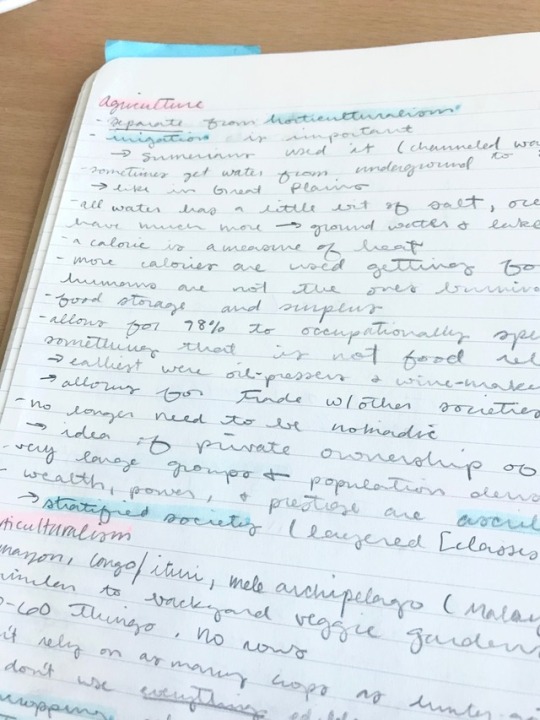 agriculture
- separate from horticulturalism
- irrigation is important
→ Sumerians used it (channeled wa
- sometimes get water from underground to
→ like in Great Plains
- all water has a little bit of salt, oce
have much more → ground water & lake
- a calorie is a measure of heat
- more calories are used getting foo
humans are not the ones burnin
- food storage and surplus
- allows for 98% to occupationally spe
something that is not food rel
→ earliest were oil-pressers & wine-make
→ allows for trade w/other societies
- no longer need to be nomadic
→ idea of private ownership of
- very large groups + population dens
- wealth, power, & prestige are ascri
→ stratified society (layered [classes
rticulturalism
mazon, congo/ituri, mele archipelago (Malay
similar to backyard veggie gardens
0-60 things. no rows
n't rely on as many crops as hunter-ga
don't use everything
ropping